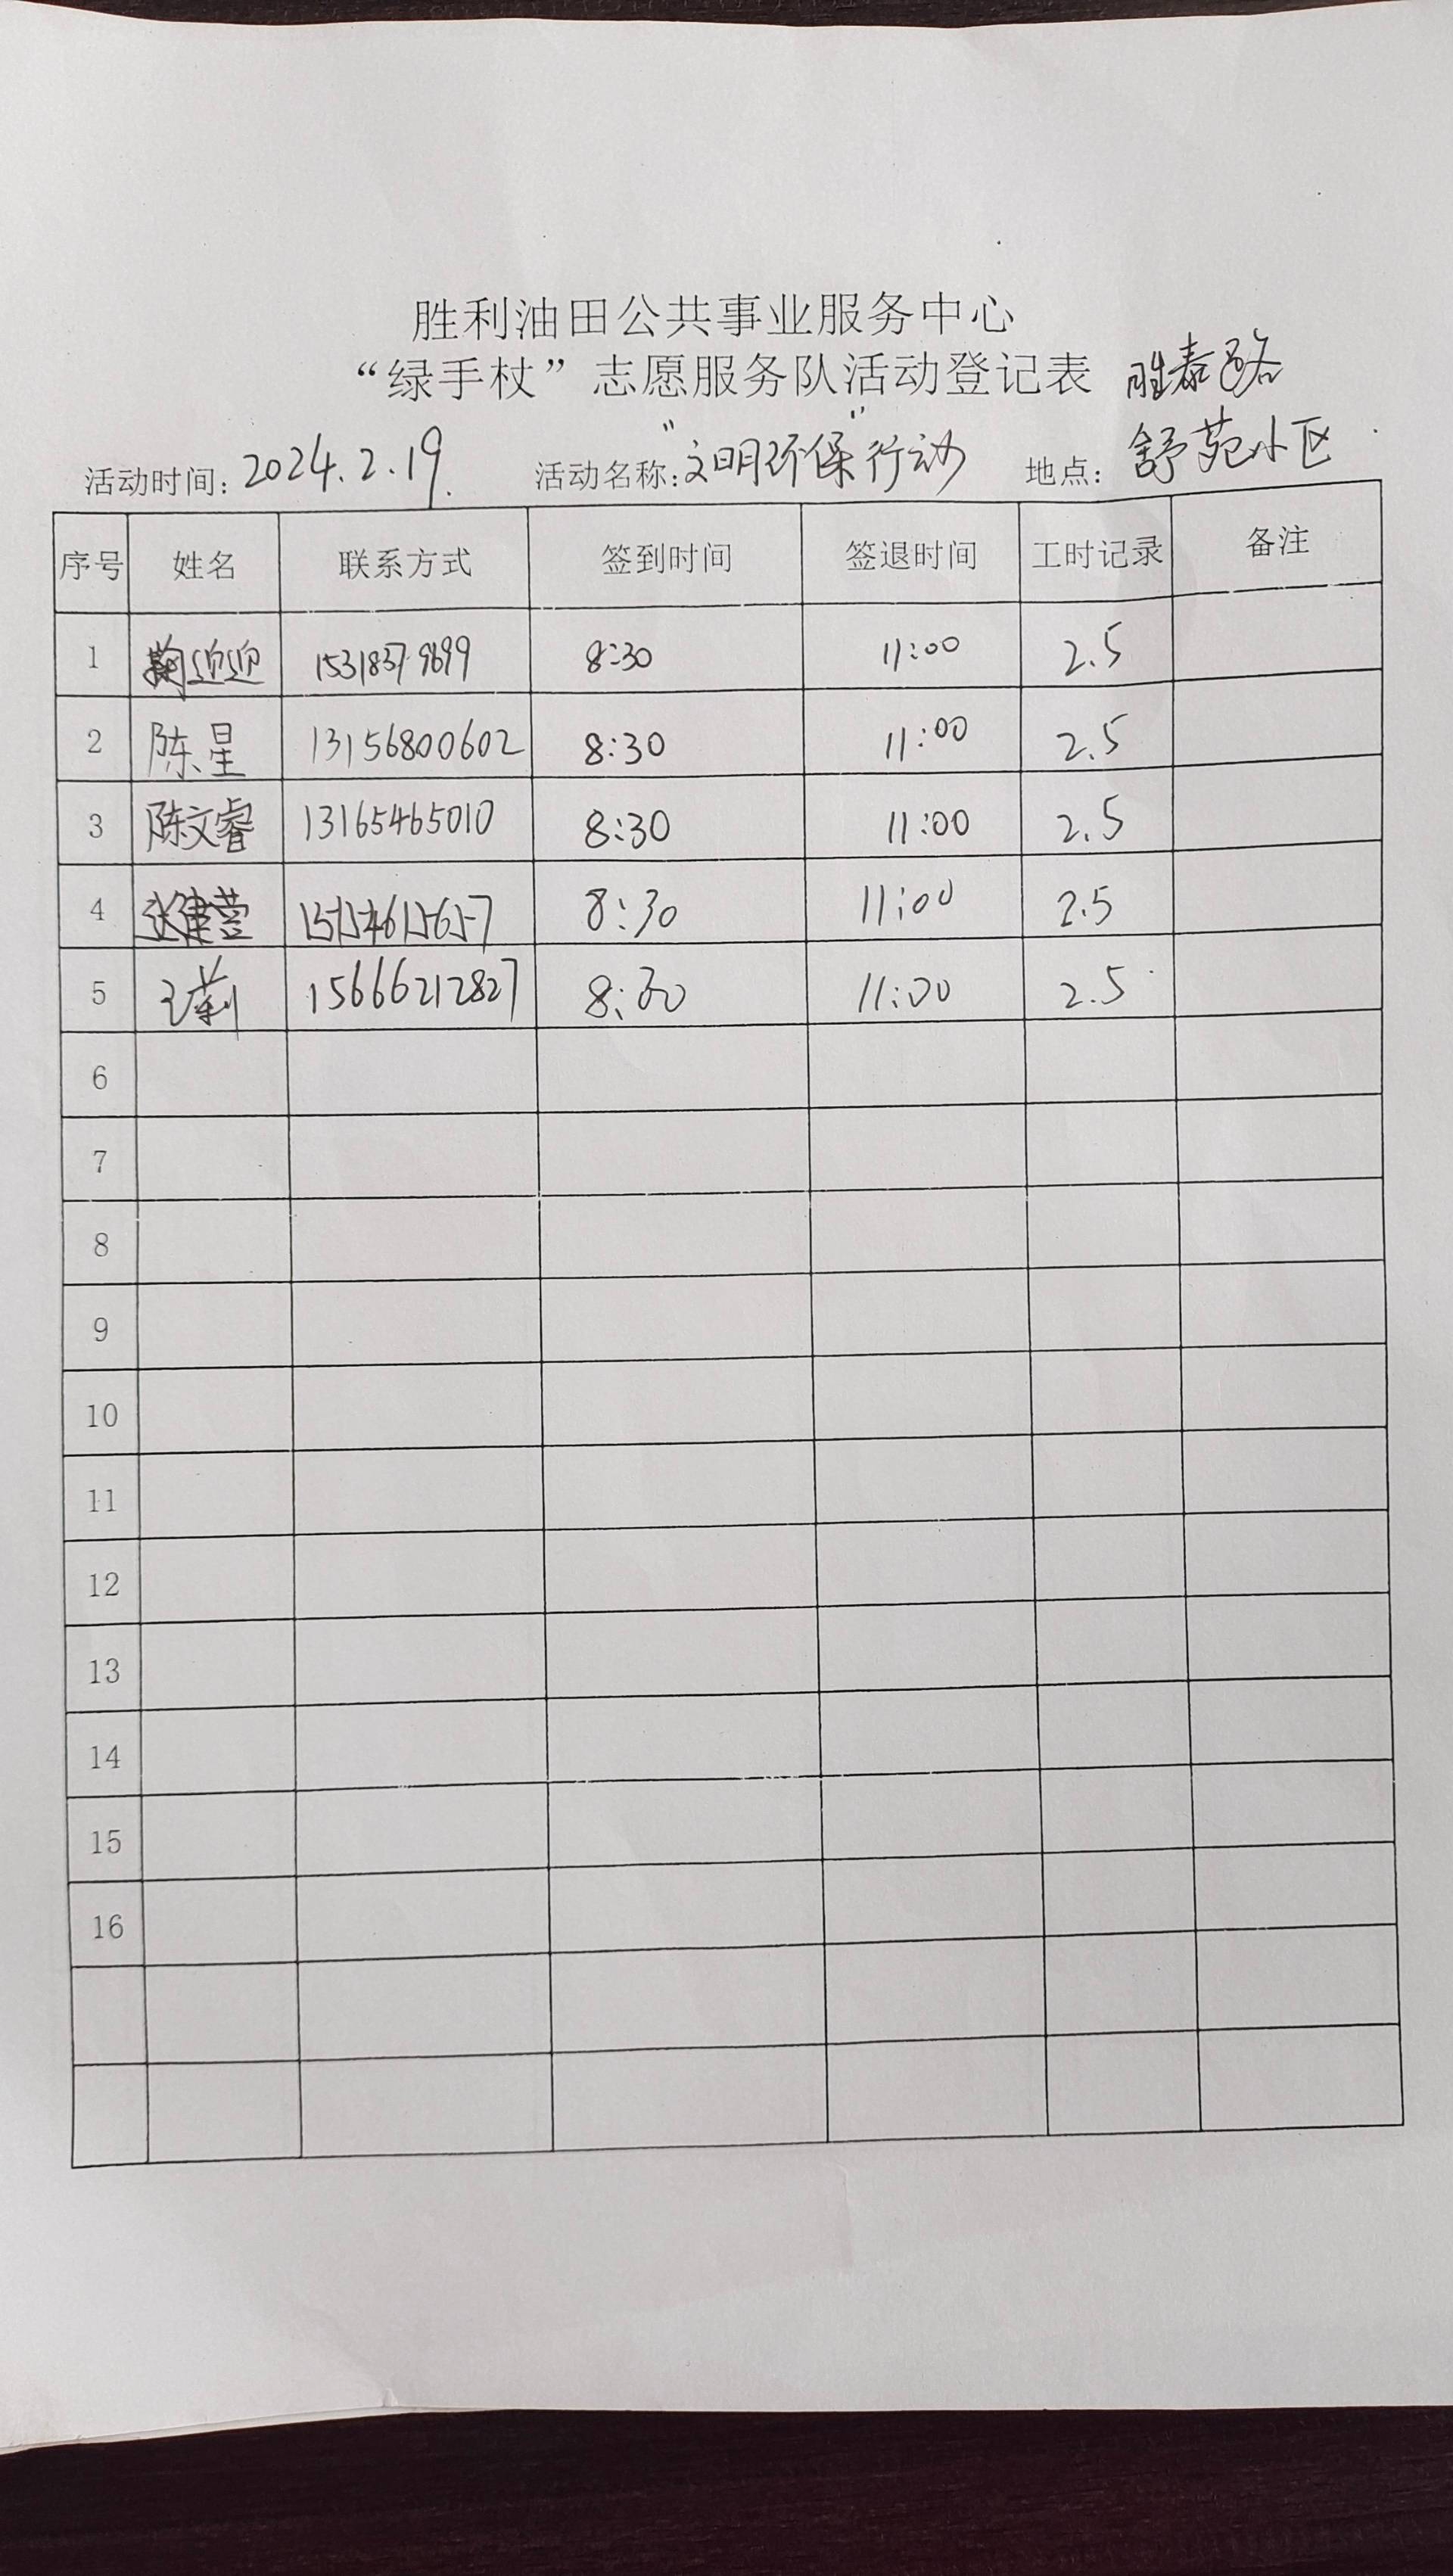 胜利油田公共事业服务中心
“绿手杖”志愿服务队活动登记表 胜泰路
活动时间：2024.2.19. 活动名称：“文明环保”行动 地点：舒苑小区
序号 姓名 联系方式 签到时间 签退时间 工时记录 备注
1 鞠迎迎 15318379699 8:30 11:00 2.5
2 陈星 13156800602 8:30 11:00 2.5
3 陈文睿 13165465010 8:30 11:00 2.5
4 张建萱 15154615657 8:30 11:00 2.5
5 王莉 15666212827 8:30 11:00 2.5
6
7
8
9
10
11
12
13
14
15
16